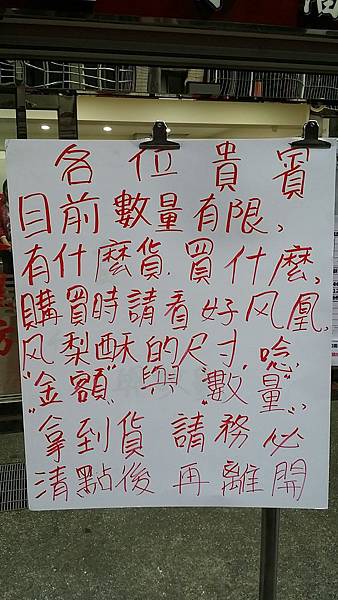 各位貴賓
目前數量有限,
有什麼貨.買什麼,
購買時請看好风凰,
风梨酥的尺寸,唸
"金額"與"數量",
拿到貨 請務必
清點後 再離開